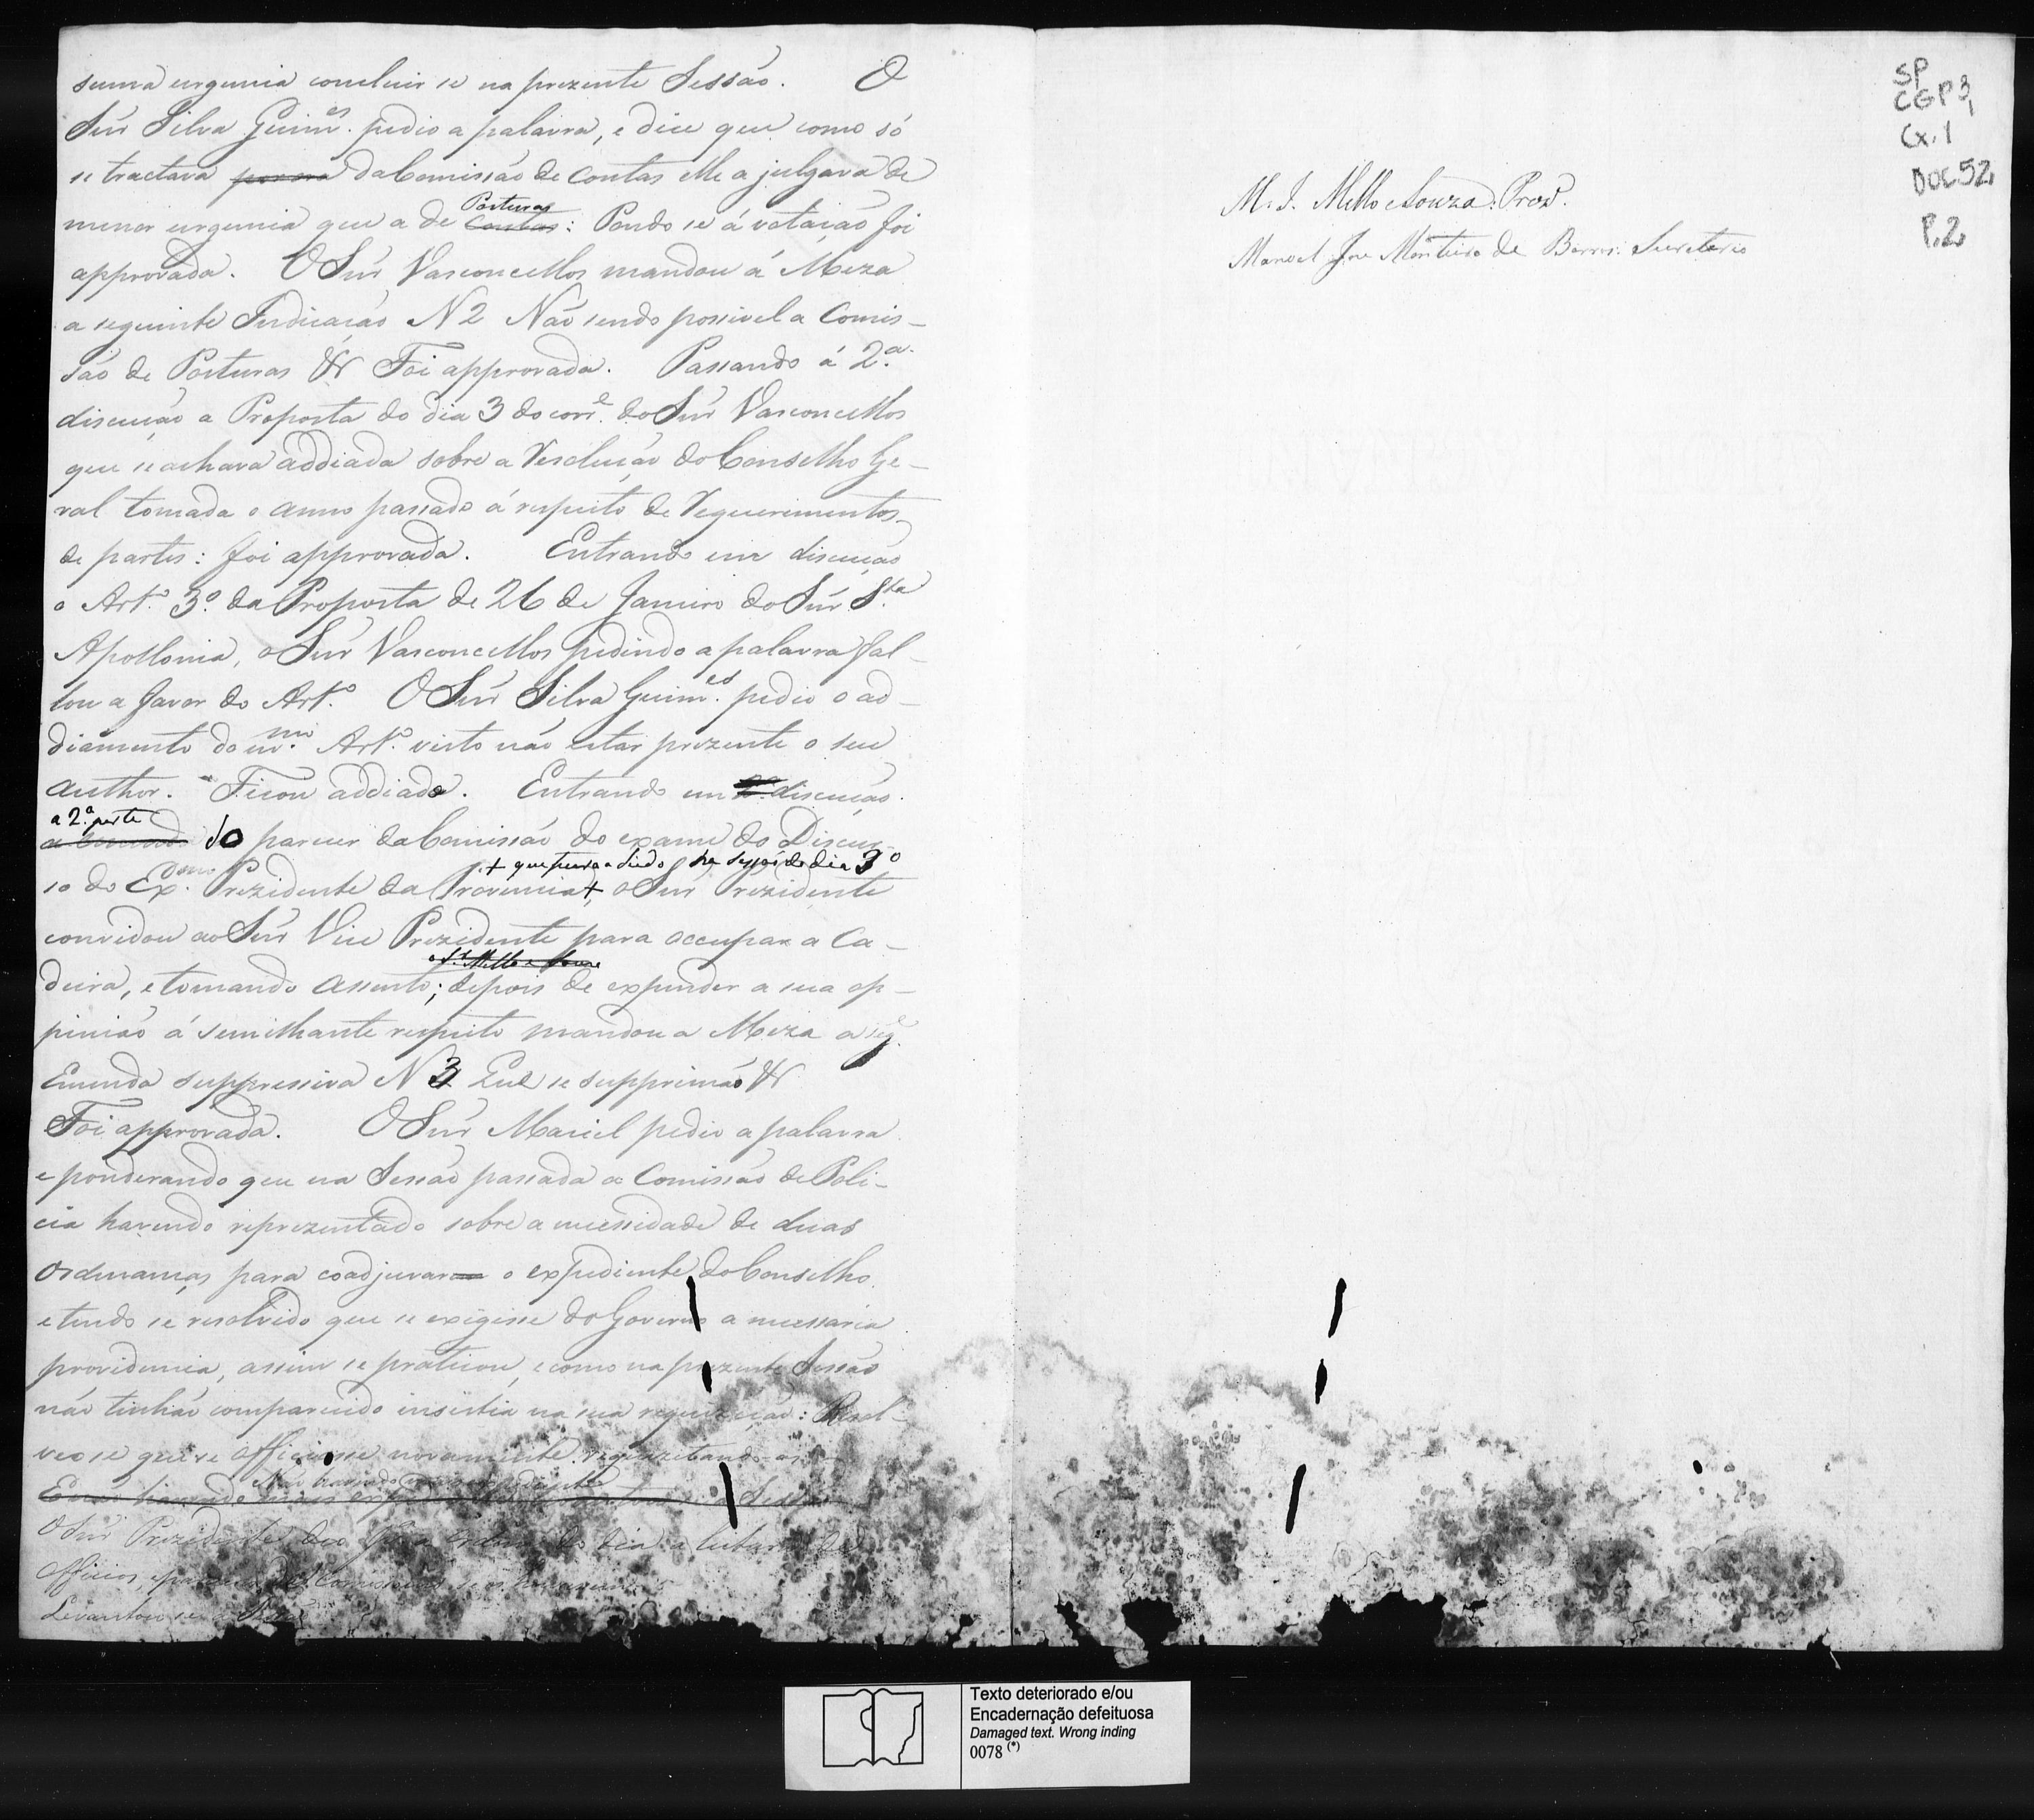 suma urgencia concluir se na prezente Sessão. O
Snr Silva Guim.es pedio a palavra, e dice que como só
se tractava da Comissão de Contas elle a julgava de
menor urgencia que a de Posturas Contas: Pondo se á votação foi
approvada. O Snr Vasconcellos mandou á Meza
a seguinte Indicação N 2 Não sendo possivel a Comis-
são de Posturas &r Foi approvada. Passando á 2.a
discução a Proposta do dia 3 do corr.e do Snr Vasconcellos
que se achava addiada sobre a Resolução do Conselho Ge-
ral tomada o anno passado á respeito de Requerimentos
de partes: foi approvada. Entrando em discução
o Art.o 3.o da Proposta de 26 de Janeiro do Snr S.ta
Apollonia, o Snr Vasconcellos pedindo a palavra fal-
lou a favor do Art.o O Snr Silva Guim.es pedio o ad-
diamento do m.mo Art.o visto não estar prezente o seu
Author. Ficou addiado. Entrando em discução
a 2.a parte
do parecer da Comissão do exame do Discur-
+ que ficara adiado na sessão do dia 3o
so do Ex.mo Prezidente da Provincia+, o Snr Prezidente
convidou ao Snr Vice Prezidente para occupar a Ca-
o S.r Mello e Souza
deira, e tomando assento; depois de expender a sua op-
pinião á semilhante respeito mandou a Meza a seg.e
Emenda suppressiva N 3 Que se supprimão &r
Foi approvada. O Snr Maciel pedio a palavra
e ponderando que na Sessão passada a Comissão de Poli-
cia havendo reprezentado sobre a necessidade de duas
Ordenanças para coadjuvar o expediente do Conselho
e tendo se resolvido que se exigisse do Governo a necessaria
providencia, assim se praticou, e como na prezente Sessão
não tinhão comparecido insistia na sua requizição: Resol-
veo se que se officiasse novamente requizitando as
Não havendo mais expediente
O Snr Prezidente deo para ordem do dia a leitura de
Officios, e pareceres de Comissões
Levantou se a Sessão
M. I. Mello e Souza. Prez.e
Manoel Jose Monteiro de Barros. Secretario
SP
CGP3,
Cx.1
DOC 52,
P.2
Texto deteriorado e/ou
Encadernação defeituosa
Damaged text. Wrong inding
0078 (*)